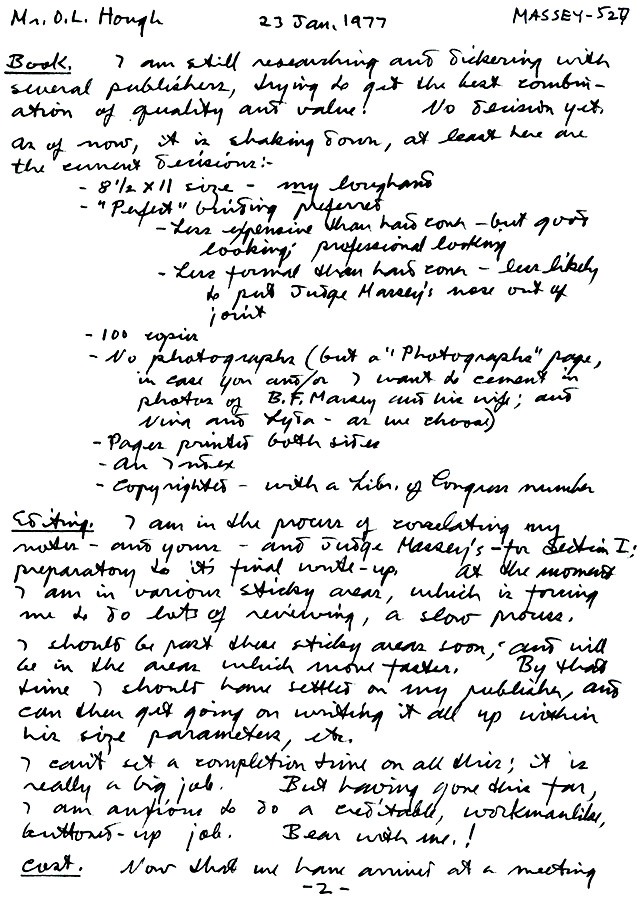 Mr. O.L. Hough 23 Jan, 1977 MASSEY-527
Book. I am still researching and dickering with
several publishers, trying to get the best combin-
ation of quality and value! No decision yet.
As of now, it is shaking down, at least here are
the current decisions:-
- 8 1/2 x 11 size - my longhand
- "Perfect" binding preferred
- Less expensive than hard cover - but good
looking; professional looking
- Less formal than hard cover - less likely
to put Judge Massey's nose out of
joint
- 100 copies
- No photographs (but a "Photographs" page,
in case you and/or I want to cement in
photos of B.F. Massey and his wife; and
Nina and Lyda - as we choose)
- Pages printed both sides
- An Index
- Copyrighted - with a Libr. of Congress number
Editing. I am in the process of correlating my
notes - and yours - and Judge Massey's - for Section I;
preparatory to its final write-up. At the moment
I am in various sticky areas, which is forcing
me to do lots of reviewing, a slow process.
I should be past these sticky areas soon, and will
be in the areas which move faster. By that
time I should have settled on my publisher, and
can then get going on writing it all up within
his size parameters, etc.
I can't set a completion time on all this; it is
really a big job. But having gone this far,
I am anxious to do a creditable, workmanlike,
buttoned-up job. Bear with me.!
Cost. Now that we have arrived at a meeting
-2-